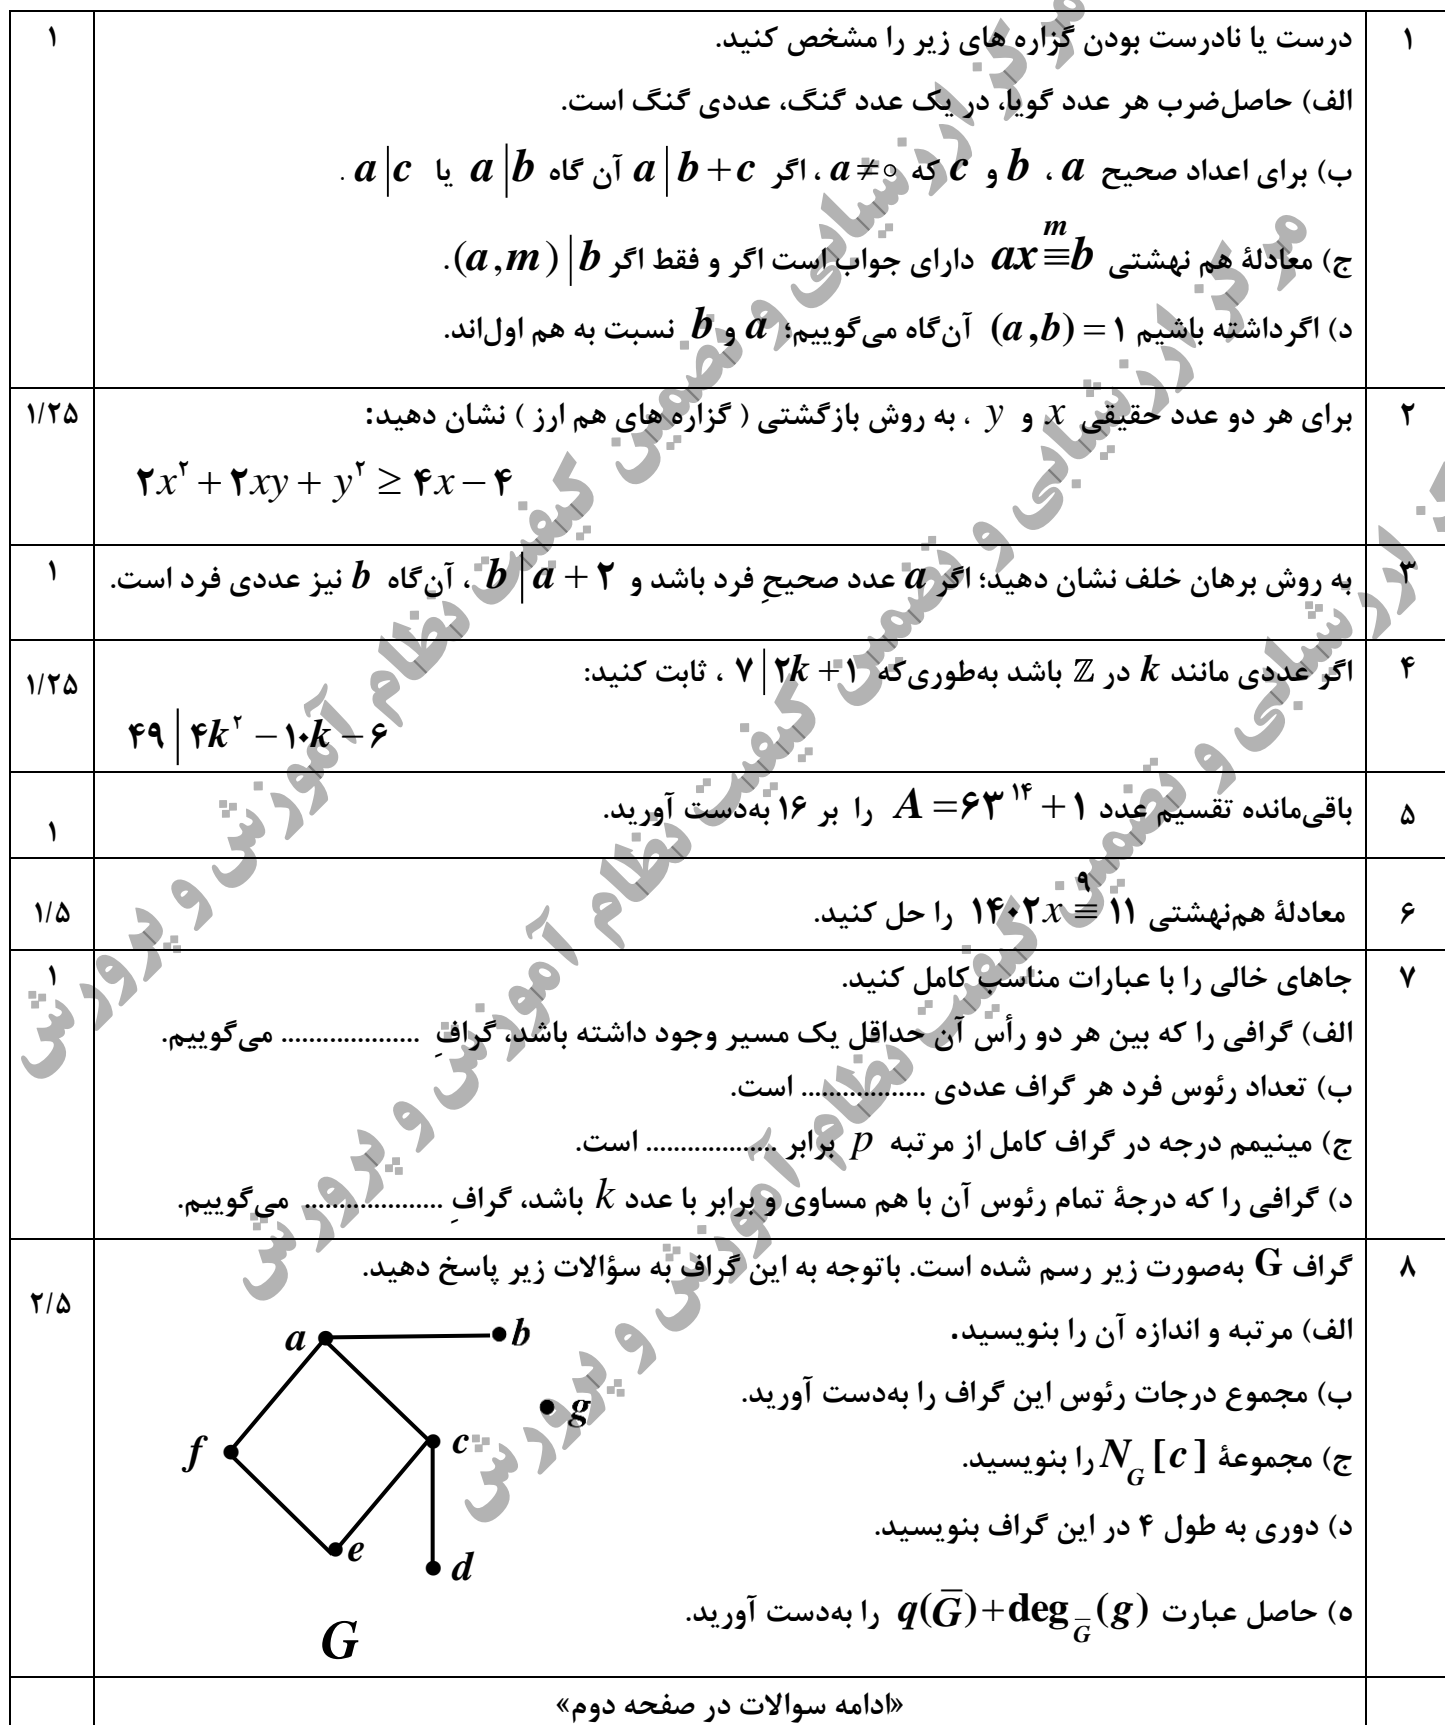 ۱ درست یا نادرست بودن گزاره های زیر را مشخص کنید. ۱
الف) حاصل‌ضرب هر عدد گویا، در یک عدد گنگ، عددی گنگ است.
ب) برای اعداد صحیح a ، b و c که a ≠ ۰ ، اگر a | b + c آن گاه a | b یا a | c .
ج) معادلهٔ هم نهشتی ax ≡ b (m) دارای جواب است اگر و فقط اگر (a , m) | b .
د) اگرداشته باشیم (a , b) = ۱ آن‌گاه می‌گوییم؛ a و b نسبت به هم اول‌اند.
۲ برای هر دو عدد حقیقی x و y ، به روش بازگشتی ( گزاره های هم ارز ) نشان دهید: ۱/۲۵
۲x² + ۲xy + y² ≥ ۴x − ۴
۳ به روش برهان خلف نشان دهید؛ اگر a عدد صحیحِ فرد باشد و b | a + ۲ ، آن‌گاه b نیز عددی فرد است. ۱
۴ اگر عددی مانند k در ℤ باشد به‌طوری‌که ۷ | ۲k + ۱ ، ثابت کنید: ۱/۲۵
۴۹ | ۴k² − ۱۰k − ۶
۵ باقی‌مانده تقسیم عدد A = ۶۳^۱۴ + ۱ را بر ۱۶ به‌دست آورید. ۱
۶ معادلهٔ هم‌نهشتی ۱۴۰۲x ≡ ۱۱ (۹) را حل کنید. ۱/۵
۷ جاهای خالی را با عبارات مناسب کامل کنید. ۱
الف) گرافی را که بین هر دو رأس آن حداقل یک مسیر وجود داشته باشد، گرافِ .................... می‌گوییم.
ب) تعداد رئوس فرد هر گراف عددی .................. است.
ج) مینیمم درجه در گراف کامل از مرتبه p برابر ................... است.
د) گرافی را که درجهٔ تمام رئوس آن با هم مساوی و برابر با عدد k باشد، گرافِ .................... می‌گوییم.
۸ گراف G به‌صورت زیر رسم شده است. باتوجه به این گراف به سؤالات زیر پاسخ دهید. ۲/۵
الف) مرتبه و اندازه آن را بنویسید.
ب) مجموع درجات رئوس این گراف را به‌دست آورید.
ج) مجموعهٔ N_G [c] را بنویسید.
د) دوری به طول ۴ در این گراف بنویسید.
ه) حاصل عبارت q(G̅) + deg_G̅ (g) را به‌دست آورید.
a b
g
f c
e d
G
«ادامه سوالات در صفحه دوم»
مرکز ارزشیابی و تضمین کیفیت نظام آموزش و پرورش
مرکز ارزشیابی و تضمین کیفیت نظام آموزش و پرورش
مرکز ارزشیابی و تضمین کیفیت نظام آموزش و پرورش